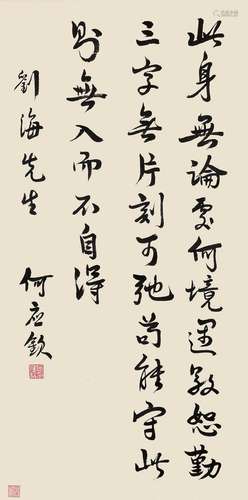 此身無論處何境遇敬恕勤
三字無片刻可弛苟能守此
則無入而不自得
劉海先生
何应欽